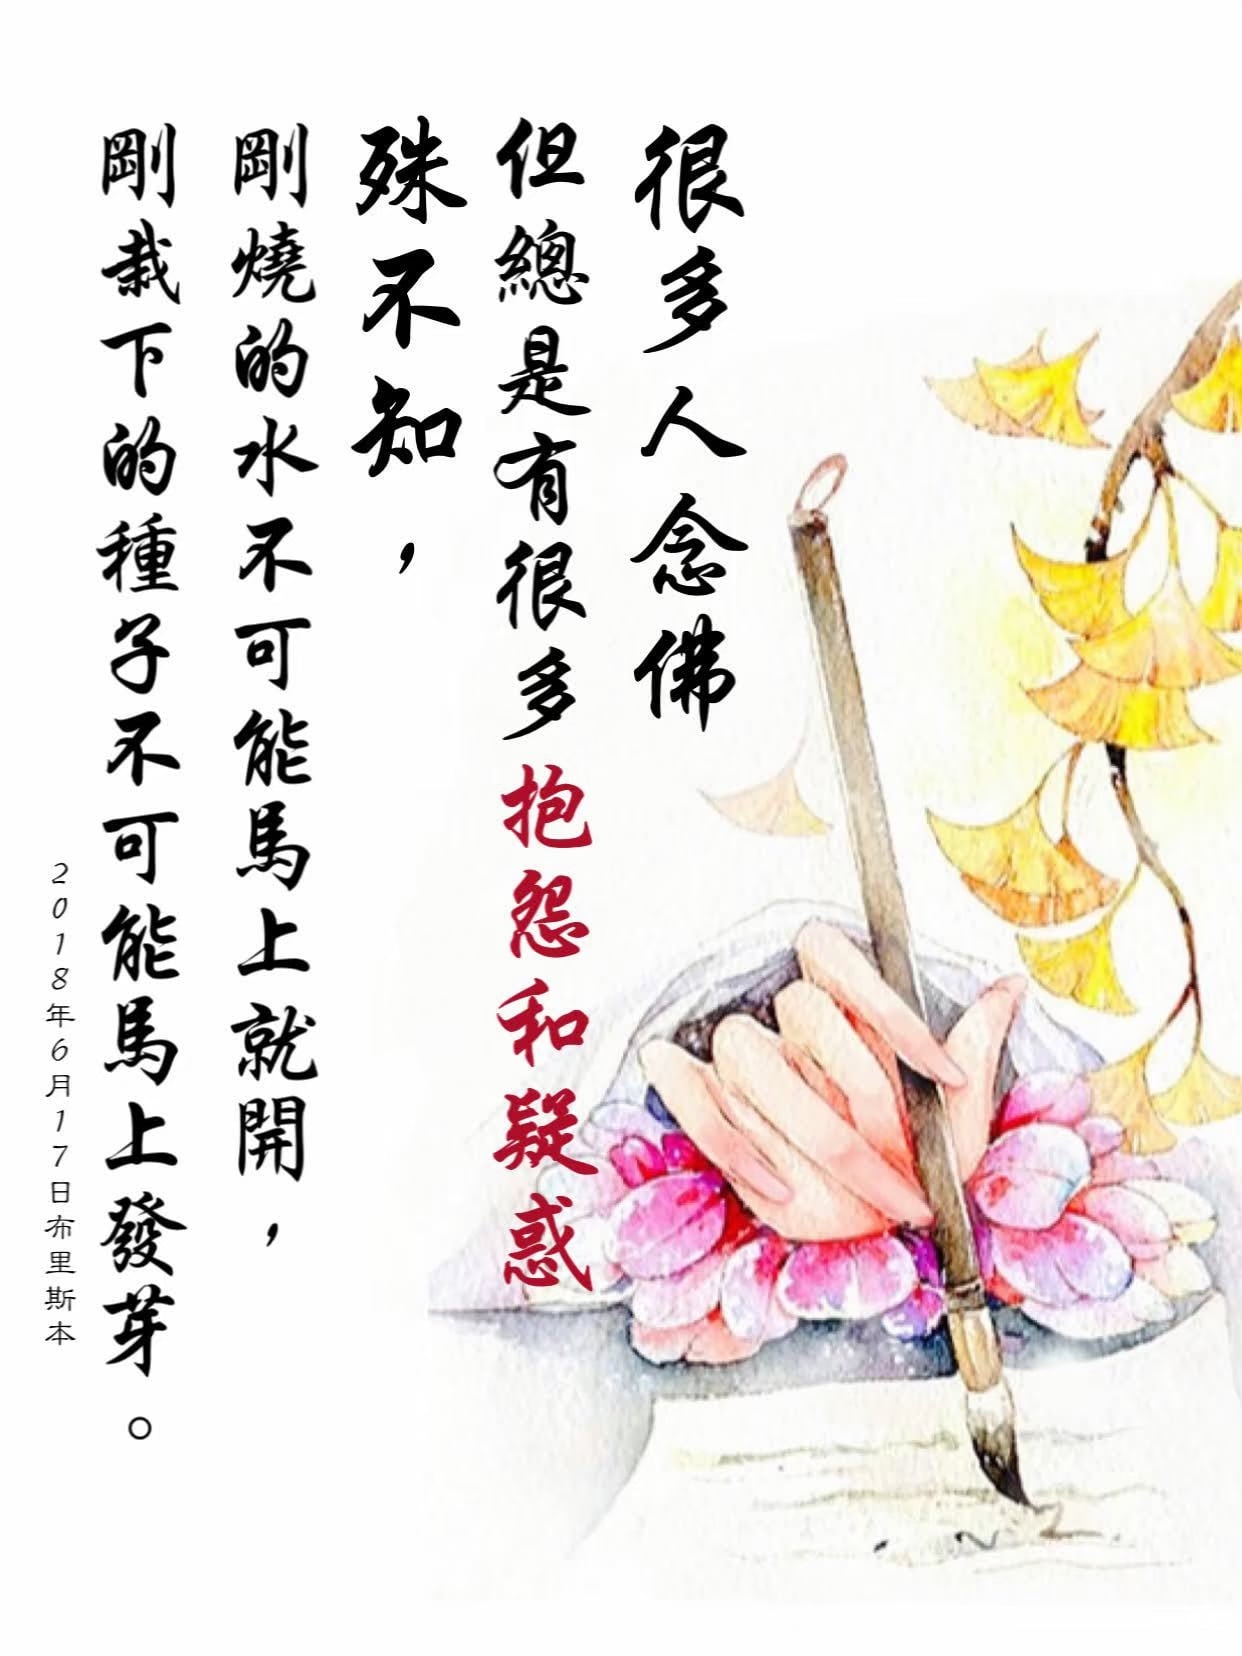 很多人念佛
但總是有很多抱怨和疑惑
殊不知，
剛燒的水不可能馬上就開，
剛栽下的種子不可能馬上發芽。
2018年6月17日布里斯本